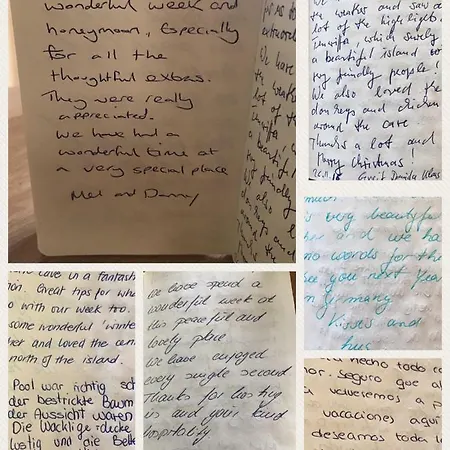 wonderful week and
honeymoon, Especially
for all the
thoughtful extras.
They were really
appreciated.
We have had a
wonderful time at
a very special place
Mel and Danny
We have
the weather
lot of the
a beautiful
very friendly
We also
donkeys and
around the
the weather and saw a
lot of the highlights
Tenerife, which surely
a beautiful island
very friendly people!
We also loved the
donkeys and chicken
around the cave
Thanks a lot and
Merry Christmas!
is very beautiful
and we ha
no words for the
see you next year
in Germany
Kisses and
hug
cave in a fantasti
Great tips for wh
with our week too.
some wonderful 'winter
her and loved the
north of the island.
Pool war richtig sch
der bestrickte Baum
der Aussicht waren
Die Wacklige
lustig und die
We have spend a
wonderful week at
this peaceful and
lovely place
We have enjoyed
every single second
Thanks for hosting
us and your kind
hospitality
hecho todo co
Seguro que al
volveremos a p
vacaciones aquí
deseamos toda